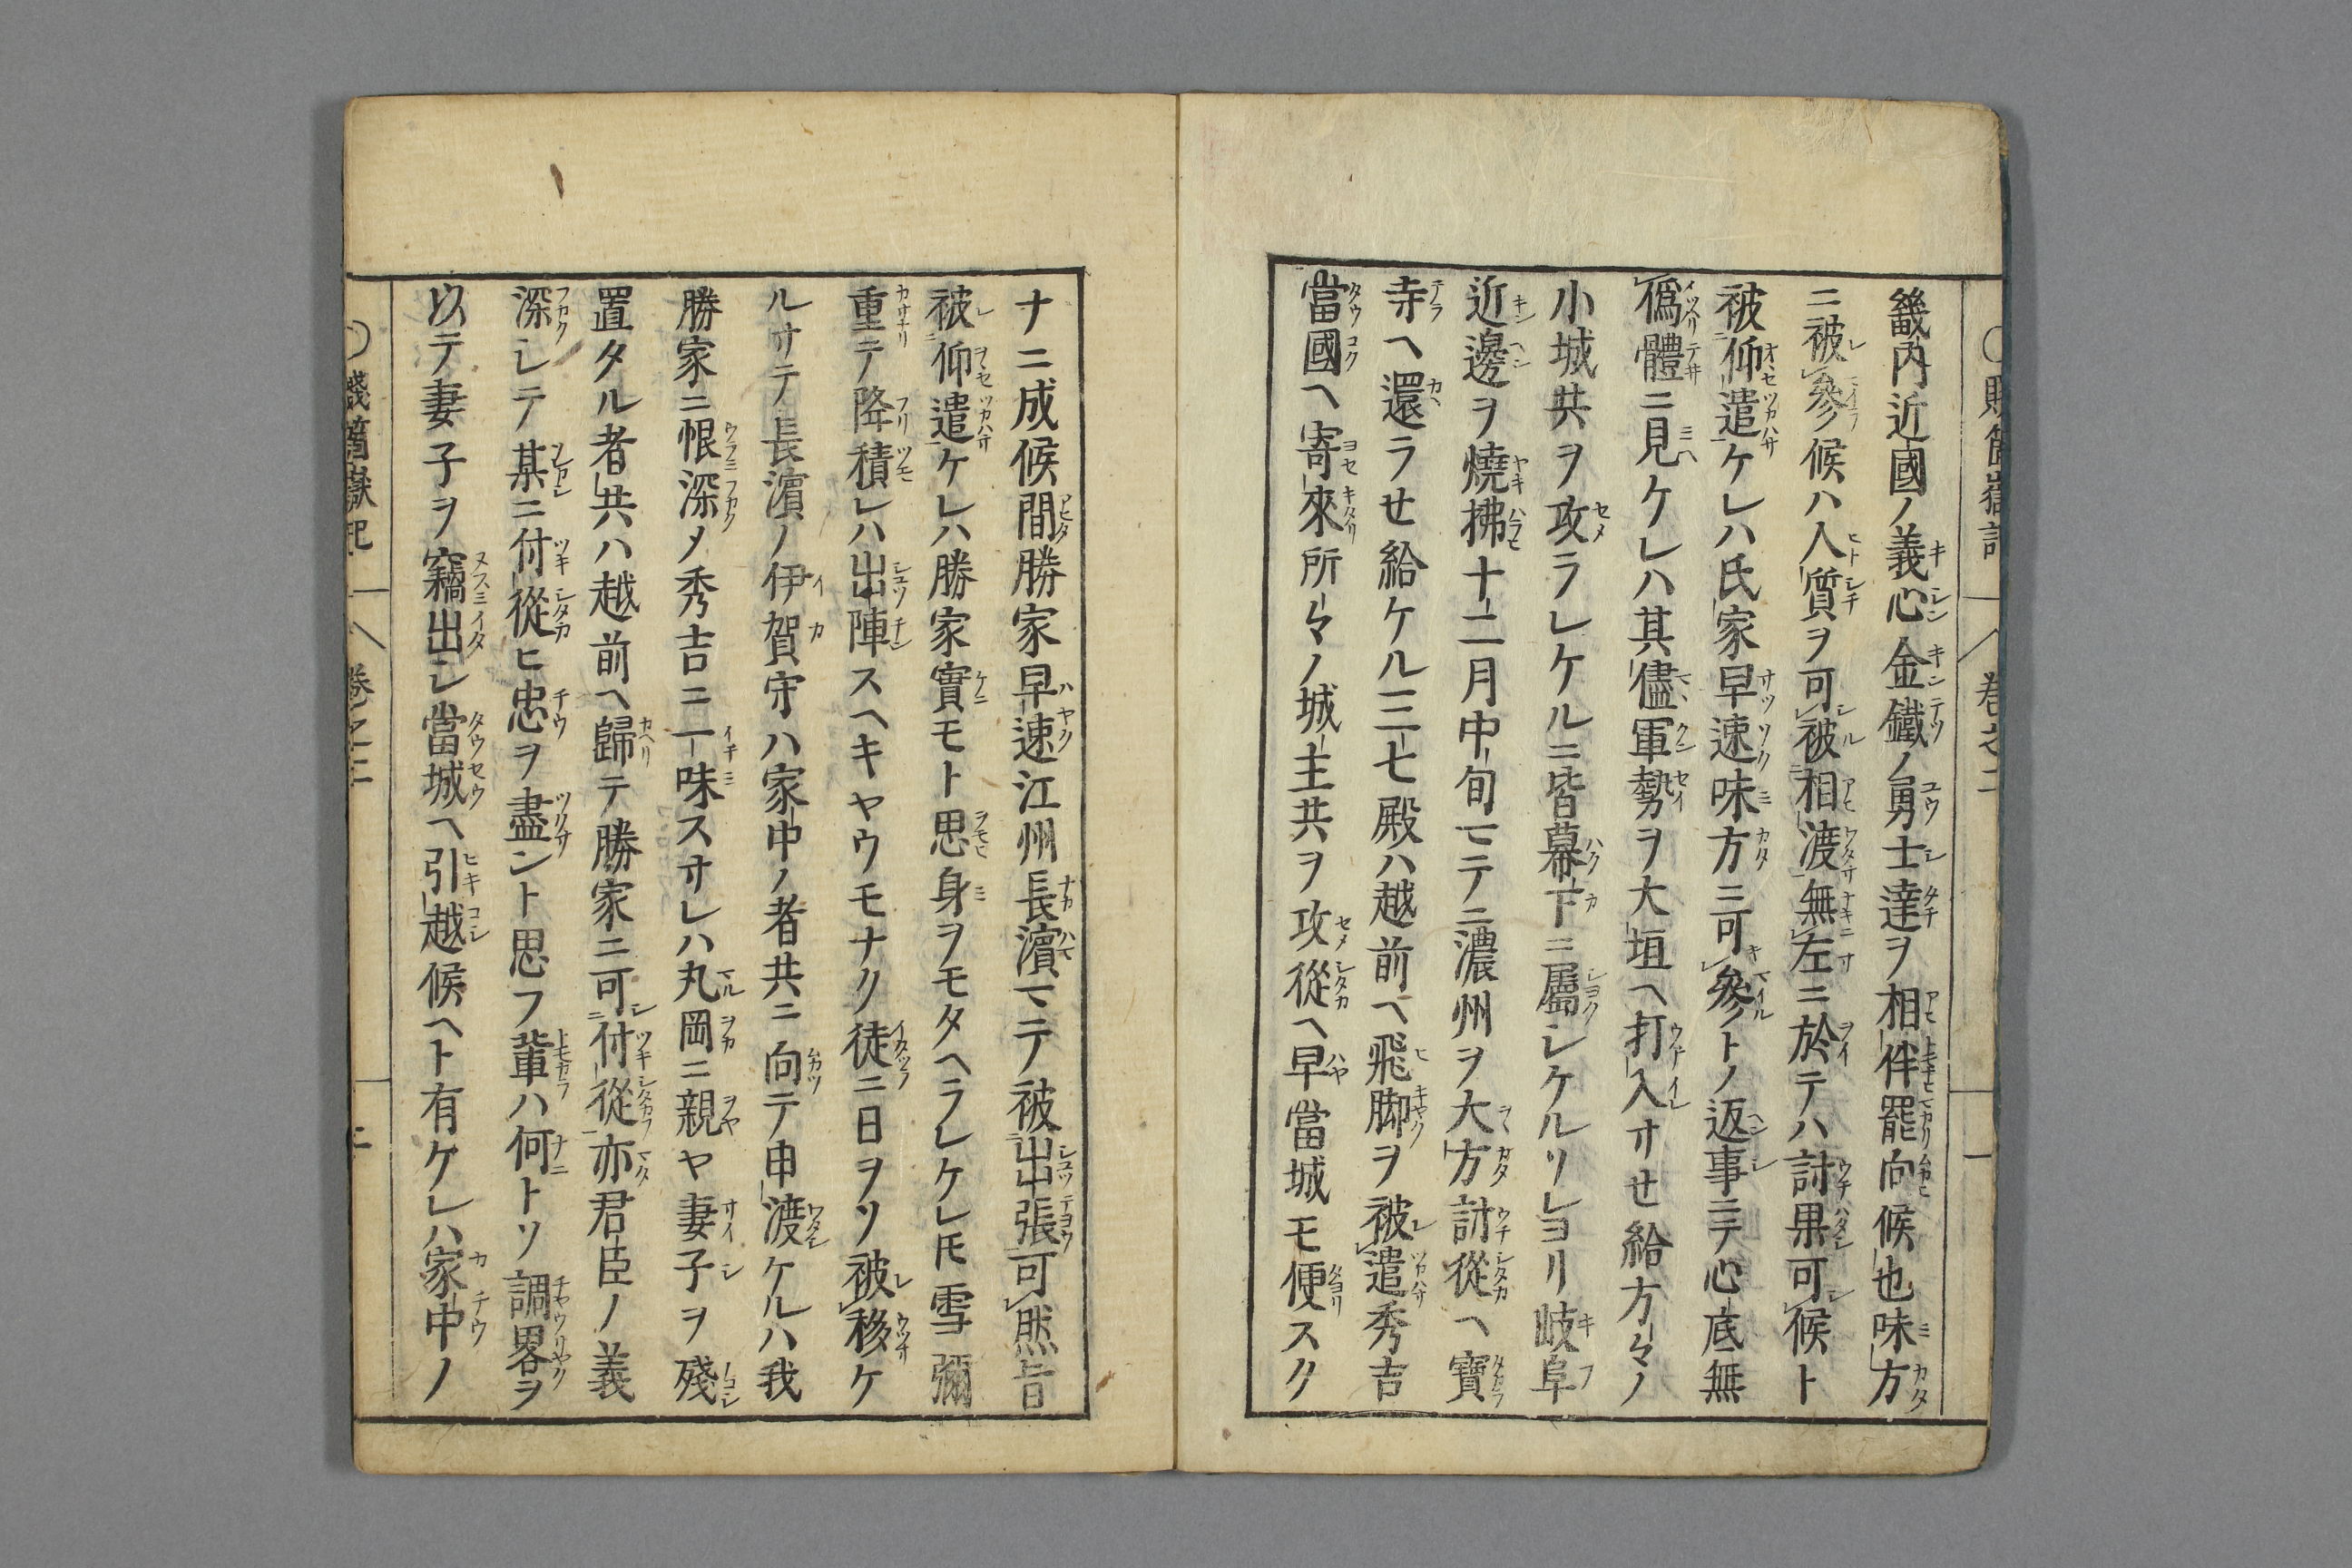 畿内近國ノ義心金鐵ノ勇士達ヲ相伴罷向候也味方
ニ被參候ハ人質ヲ可被相渡無左ニ於テハ討果可候ト
被仰遣ケレハ氏家早速味方ニ可參トノ返事ニテ心底無
僞體ニ見ケレハ其儘軍勢ヲ大垣ヘ打入サセ給方々ノ
小城共ヲ攻ラレケルニ皆幕下ニ屬シケルソレヨリ岐阜
近邊ヲ燒拂十二月中旬マテニ濃州ヲ大方討從ヘ寶
寺ヘ還ラせ給ケル三七殿ハ越前ヘ飛脚ヲ被遣秀吉
當國ヘ寄來所々ノ城主共ヲ攻從ヘ早當城モ便スク
ナニ成候間勝家早速江州長濱マテ被出張可然旨
被仰遣ケレハ勝家實モト思身ヲモタヘラレケレ𪜈雪彌
重テ降積レハ出陣スヘキヤウモナク徒ニ日ヲソ被移ケ
ルサテ長濱ノ伊賀守ハ家中ノ者共ニ向テ申渡ケルハ我
勝家ニ恨深メ秀吉ニ一味スサレハ丸岡ニ親ヤ妻子ヲ殘
置タル者共ハ越前ヘ歸テ勝家ニ可付從亦君臣ノ義
深シテ某ニ付從ヒ忠ヲ盡ント思フ輩ハ何トソ調畧ヲ
以テ妻子ヲ竊出シ當城ヘ引越候ヘト有ケレハ家中ノ